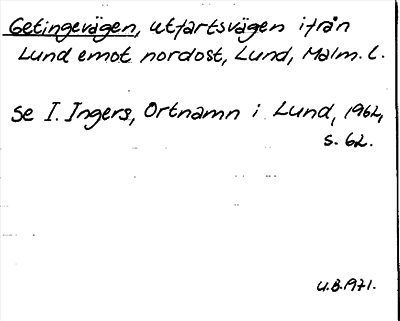 Getingevägen, utfartsvägen ifrån
Lund emot nordost, Lund, Malm. l.
Se I. Ingers, Ortnamn i Lund, 1962,
s. 62.
U.B.1971.